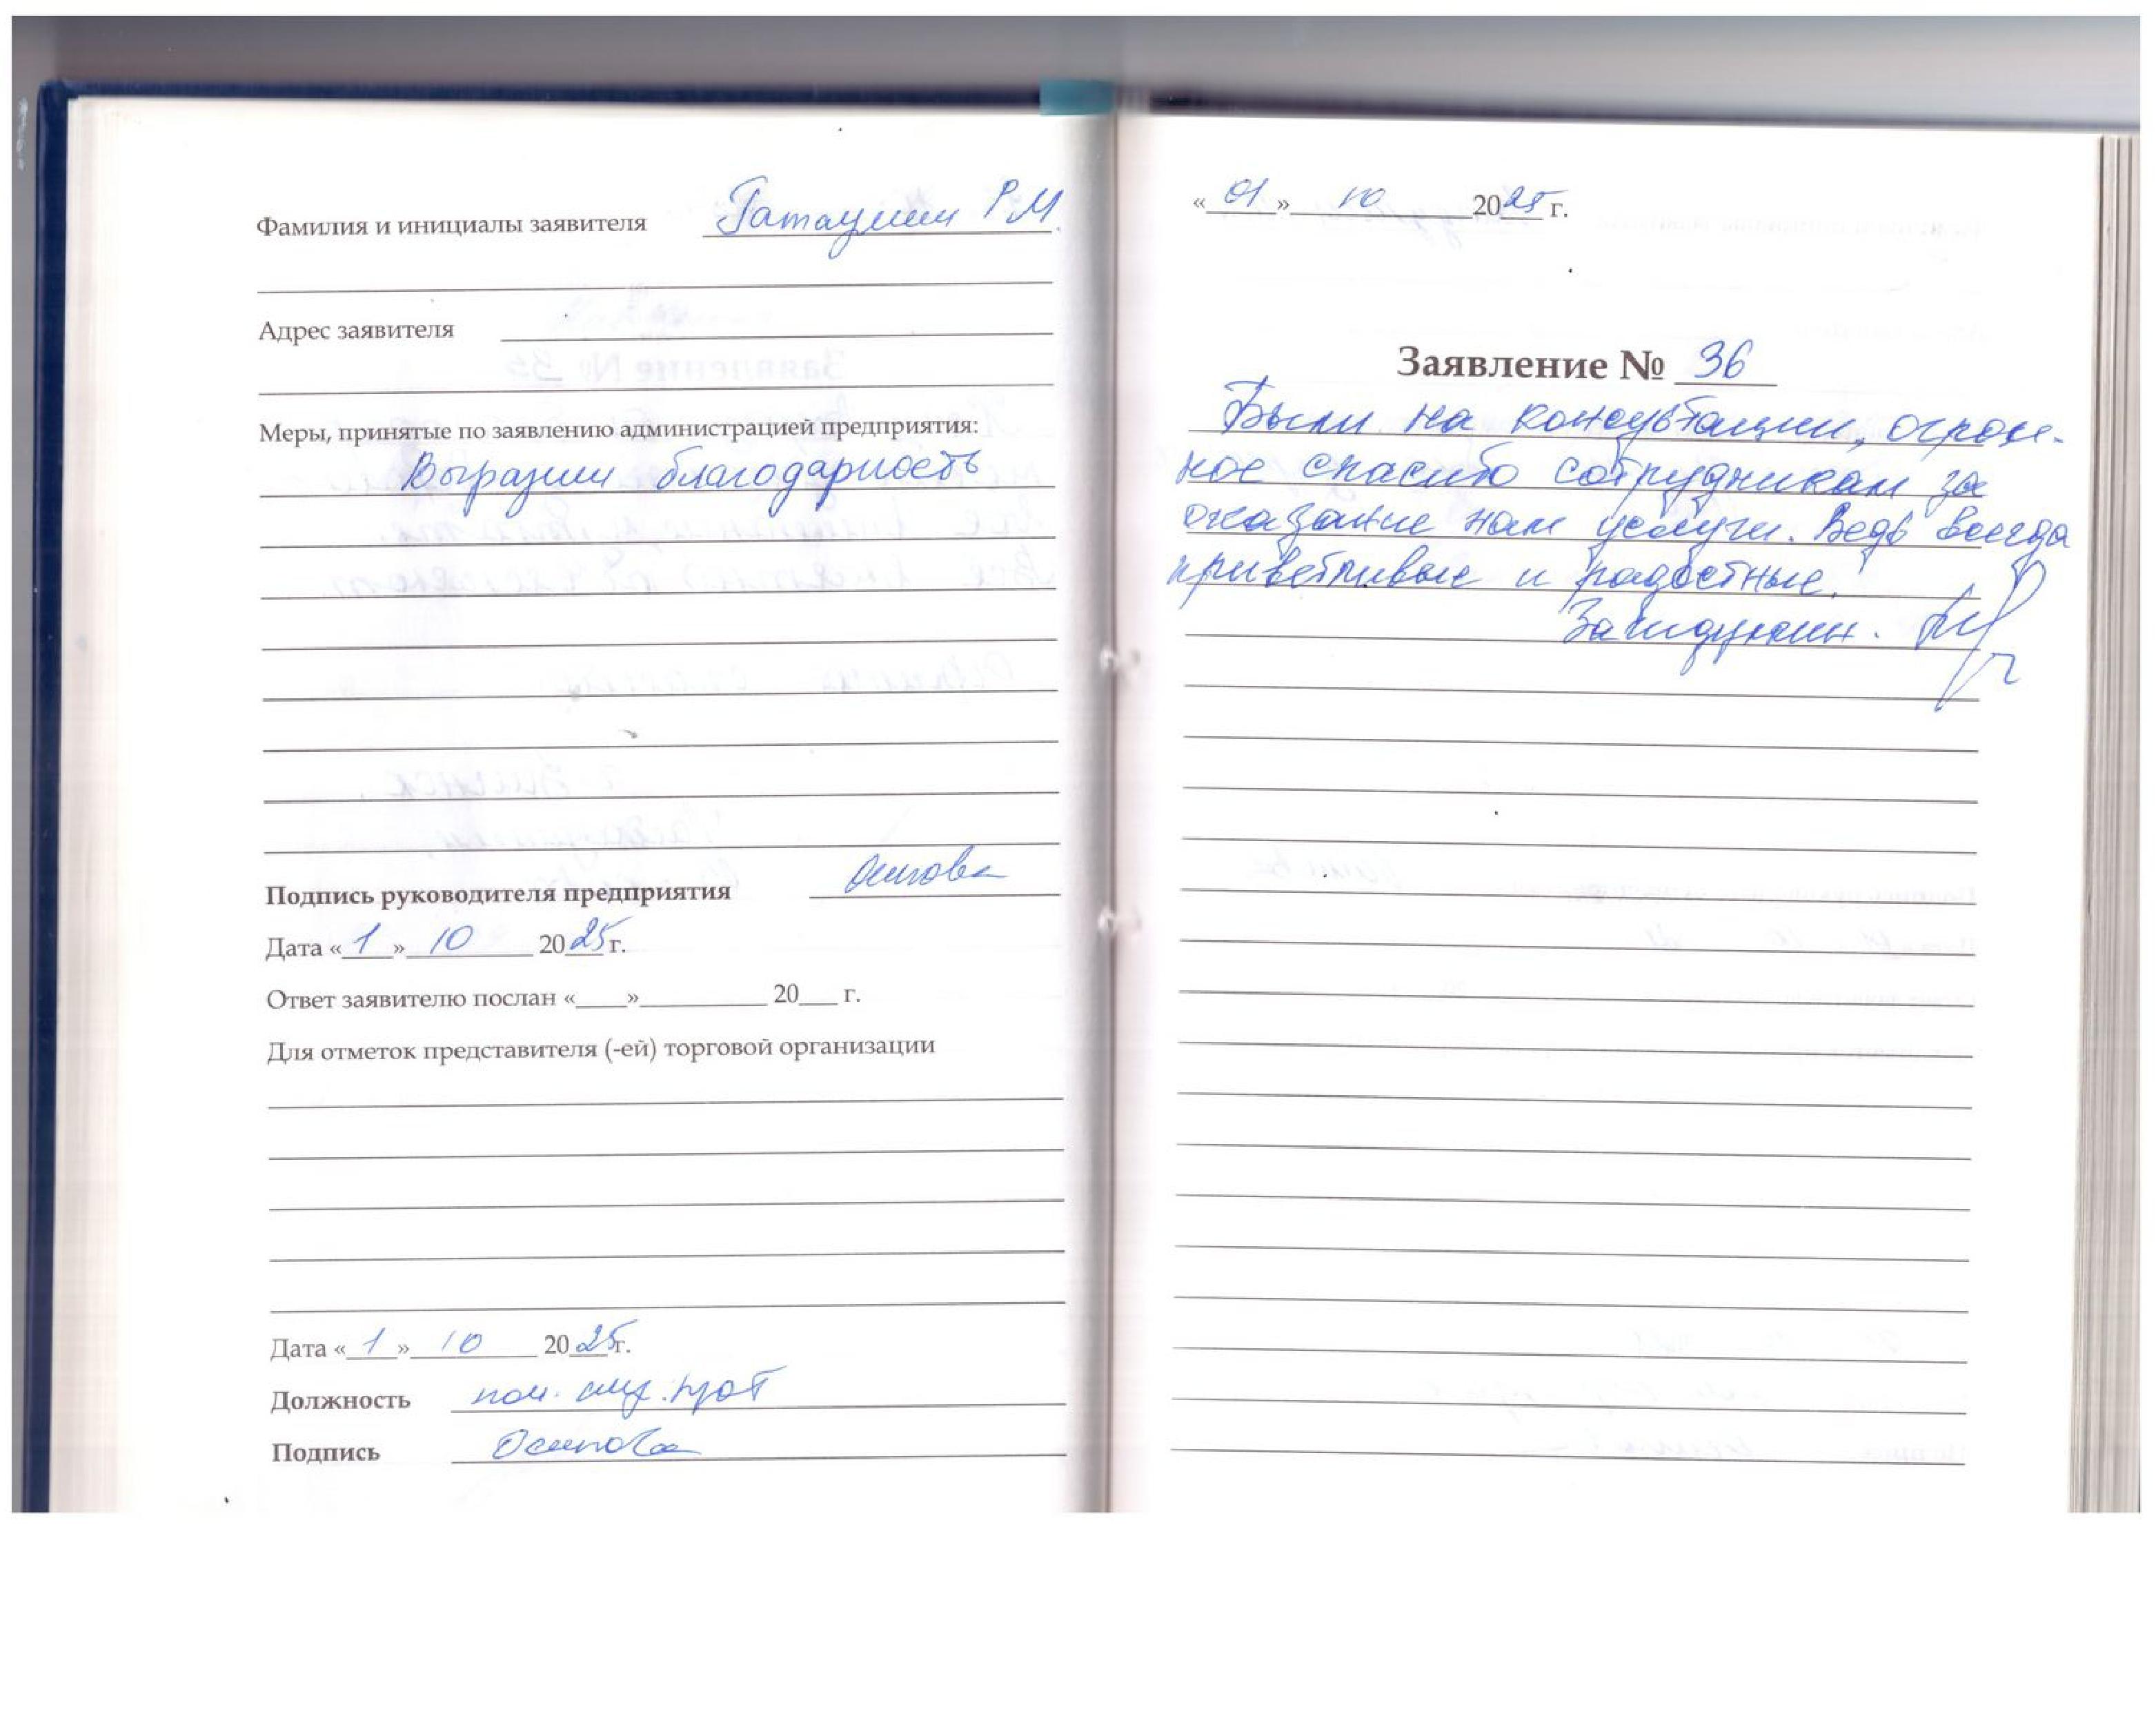 Фамилия и инициалы заявителя Р М
Адрес заявителя
Меры, принятые по заявлению администрацией предприятия:
Выразили благодарность
Подпись руководителя предприятия Осипова
Дата « 1 » 10 2025 г.
Ответ заявителю послан «____»__________ 20___ г.
Для отметок представителя (-ей) торговой организации
Дата « 1 » 10 2025г.
Должность пом.
Подпись Осипова
« 01 » 10 2025 г.
Заявление № 36
Были на консультации, огром-
ное спасибо сотрудникам за
оказание нам услуги. Ведь всегда
приветливые и радостные.